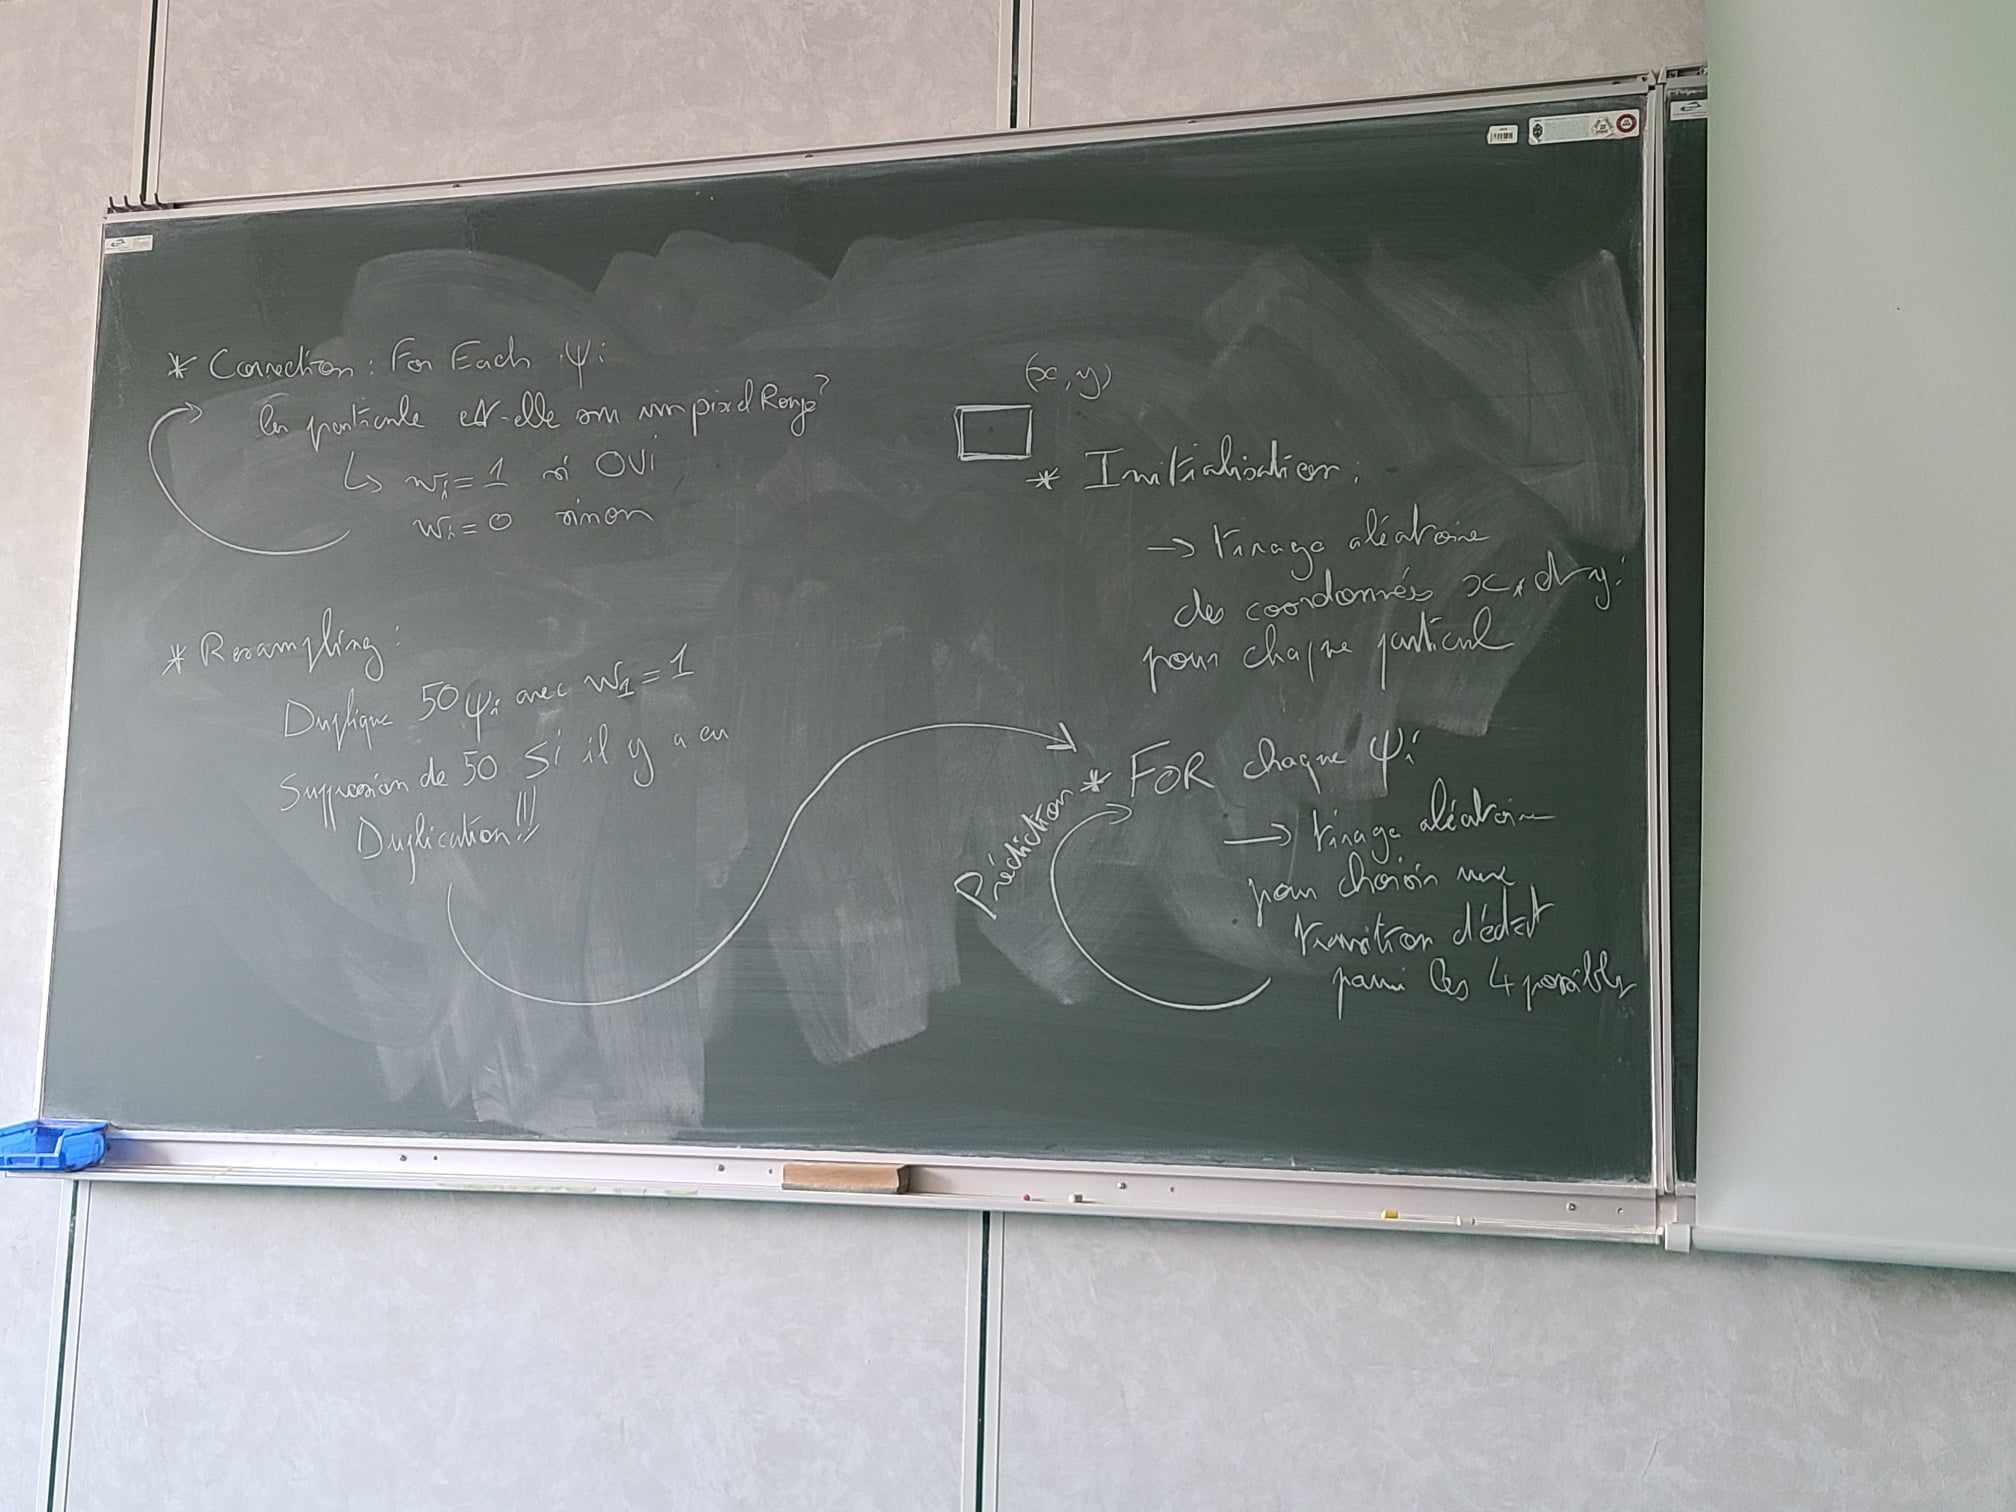 * Correction : For Each ψi
la particule est-elle sur un pixel Rouge ?
↳ wi = 1 si OUi
wi = 0 sinon
* Resampling :
Duplique 50 ψi avec w1 = 1
Suppression de 50 Si il y a eu
Duplication !!!
(x, y)
* Initialisation :
→ tirage aléatoire
des coordonnées xi et yi
pour chaque particule
Prédiction * FOR chaque ψi
→ tirage aléatoire
pour choisir une
transition d'état
parmi les 4 possibles